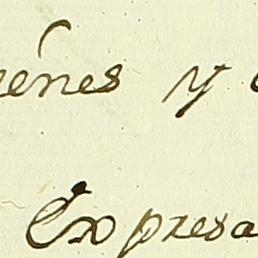 énes y
Expresa